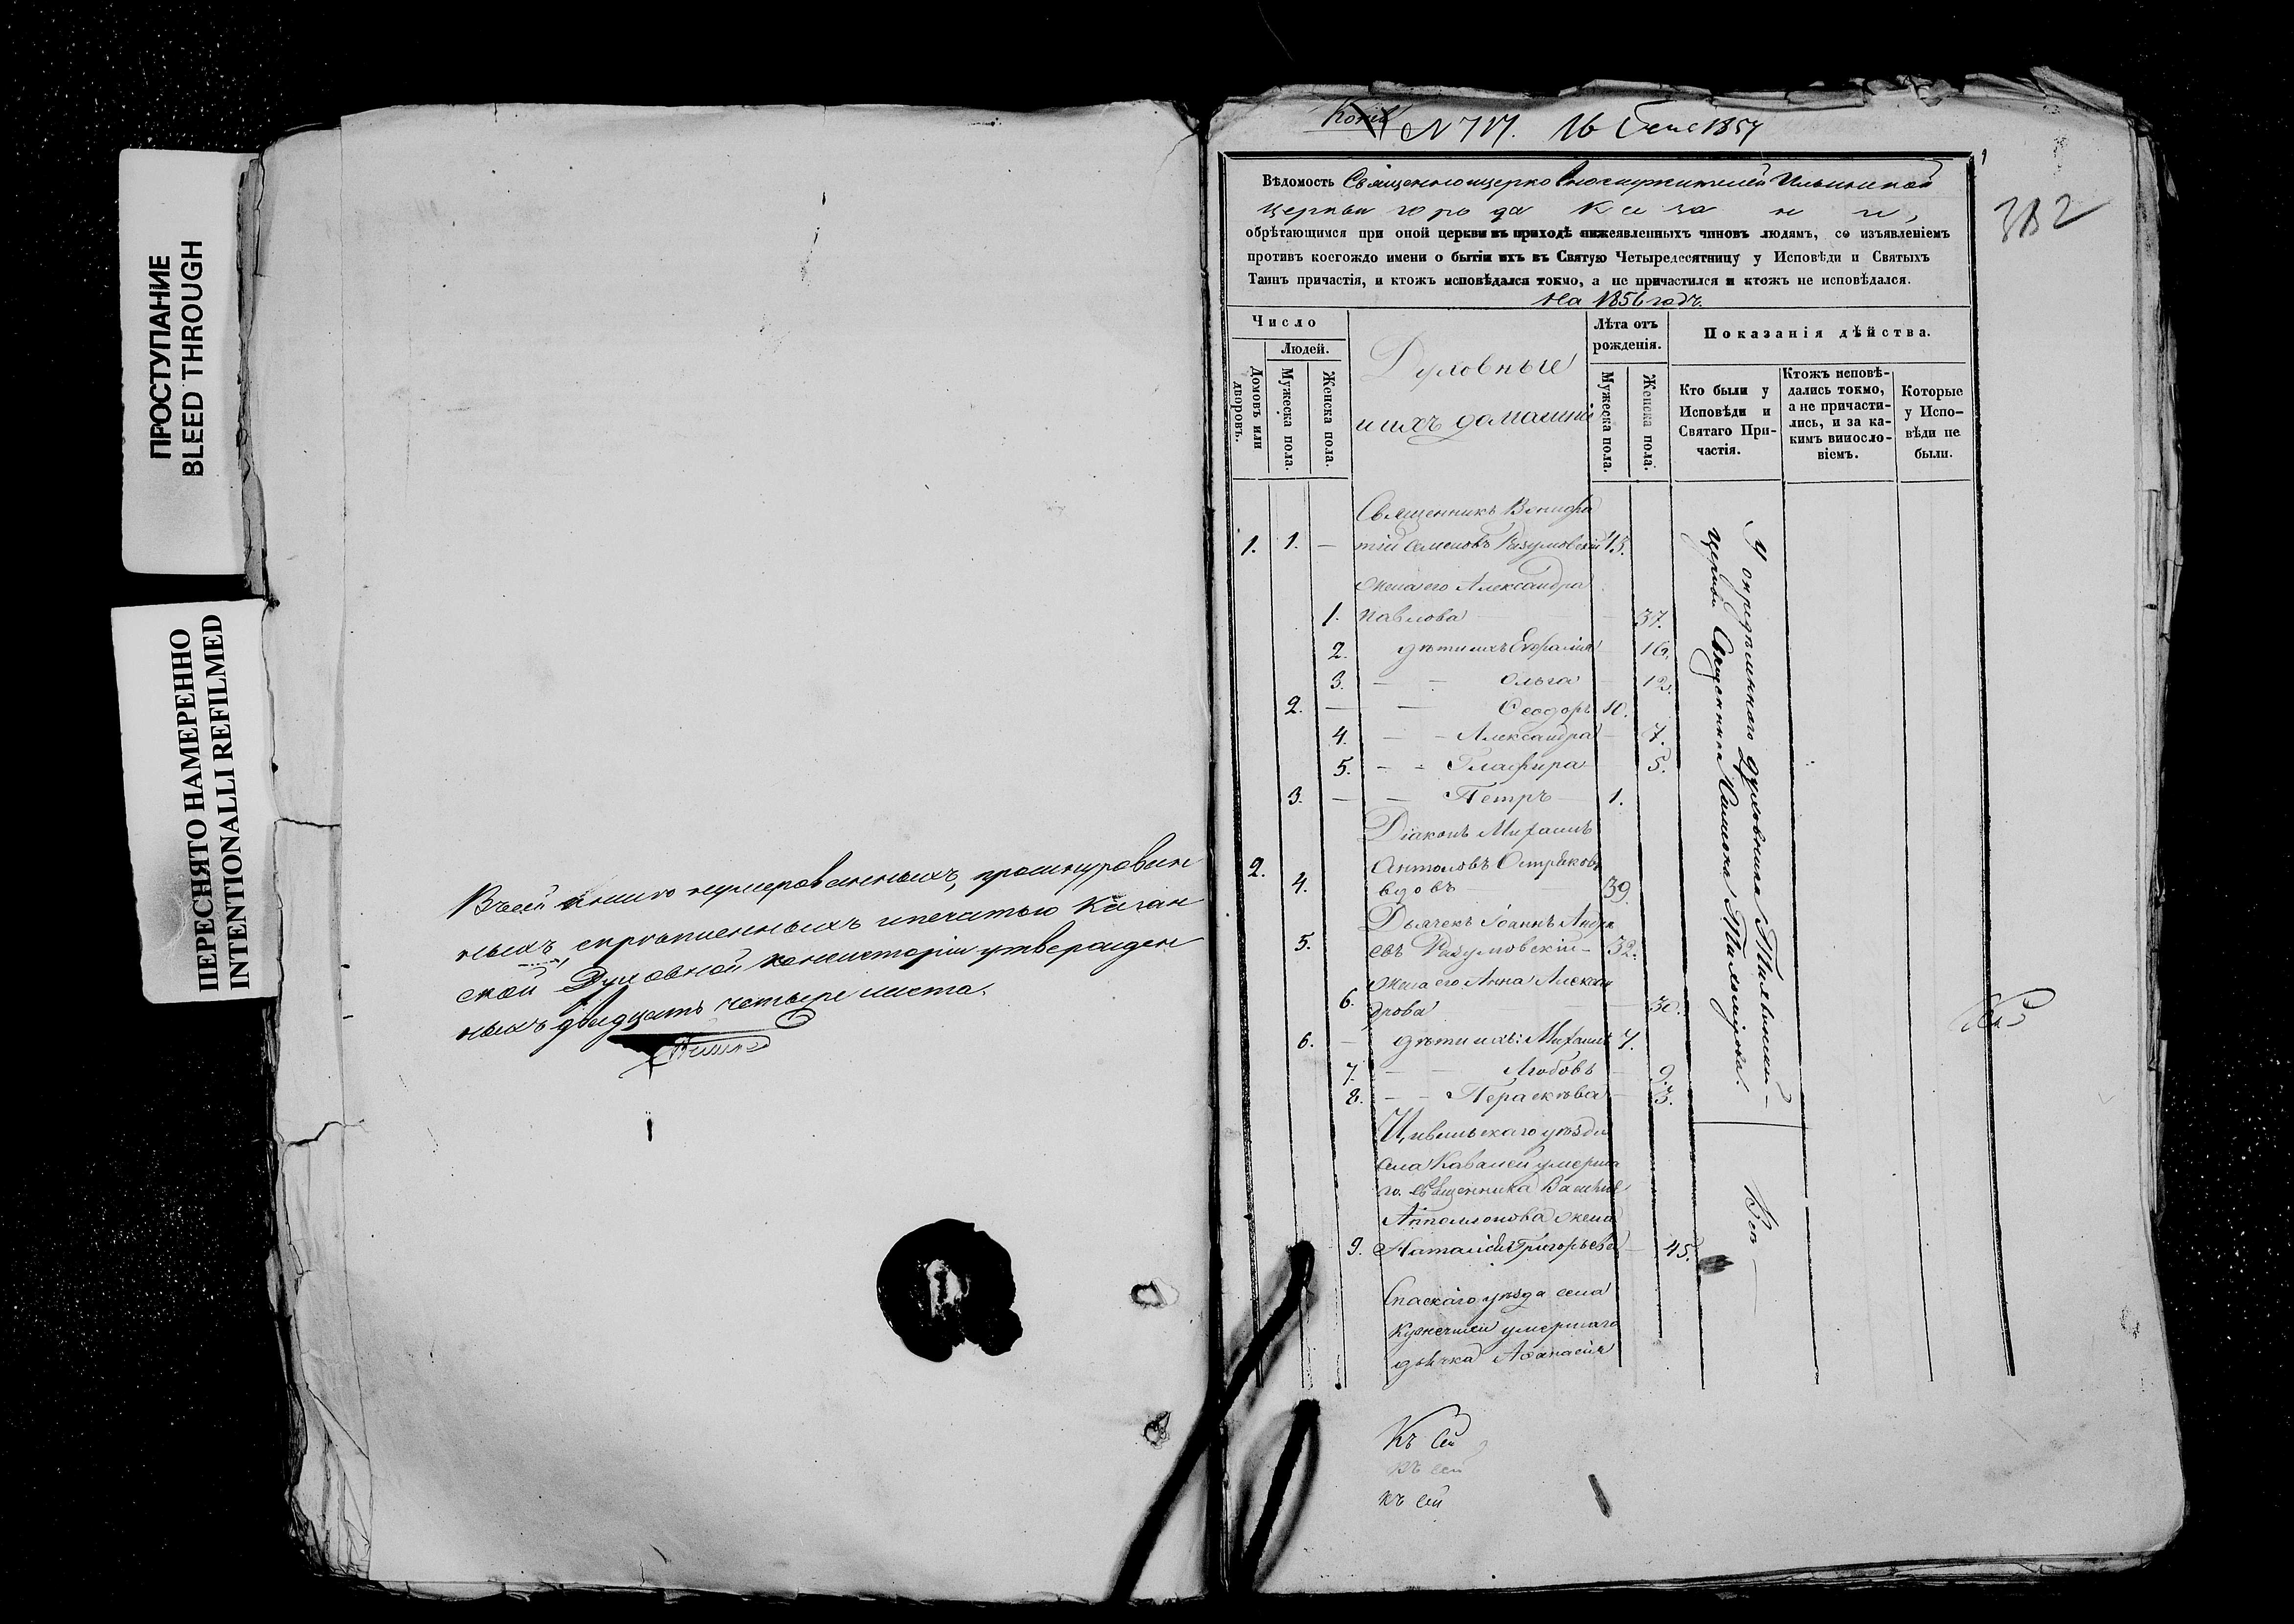 ПРОСТУПАНИЕ
BLEED THROUGH
ПЕРЕСНЯТО НАМЕРЕННО
INTENTIONALLI REFILMED
Въ сей книге нумерованныхъ, прошнурован
ныхъ, скрѣпленныхъ и печатью Казан
ской Духовной консисторіи утвержден
ныхъ двадцать четыре листа.
Копія
№ 717. 16 1857
382
Вѣдомость Священноцерковнослужителей Ильинской
церкви города Казани,
обрѣтающимся при оной церкви въ приходѣ нижеявленныхъ чиновъ людямъ, со изъявленіемъ
противъ коегождо имени о бытіи ихъ въ Святую Четыредесятницу у Исповѣди и Святыхъ
Таинъ причастія, и ктожъ исповѣдался токмо, а не причастился и ктожъ не исповѣдался.
на 1856 годъ.
Число
Людей.
Домовъ или дворовъ.
Мужеска пола.
Женска пола.
Духовные
и ихъ домашніе
Лѣта отъ рожденія.
Мужеска пола.
Женска пола.
Показанія дѣйства.
Кто были у Исповѣди и Святаго Причастія.
Ктожъ исповѣдались токмо, а не причастились, и за какимъ винословіемъ.
Которые у Исповѣди не были.
Священникъ Вонифа
1. 1. — тій Семеновъ Разумовскій 45.
жена его Александра
1. Павлова — 37.
2. дѣти ихъ Евфалія 16.
3. — — Ольга
2. — — Ѳеодоръ 10.
4. — — Александра — 7.
5. — — Глафира 5.
3. — — Петръ — 1.
Діаконъ Михаилъ
2. Антоновъ Остряковъ
4. вдовъ 39.
Дьячекъ Іоаннъ Андре
5. евъ Разумовскій — 32.
жена его Анна Алексан
6. дрова — 30.
6. — дѣти ихъ: Михаилъ 7.
7. — — Любовь — 9.
8. — — Параскѣва — 3.
Цивильскаго уѣзда
села Ковалей умерша
го священника Василія
Апполонова жена
9. Наталія Григорьева — 45.
Спаскаго уѣзда села
Кузнечихи умершаго
дьячка Аѳанасія
У опредѣленнаго духовника Тихвинской
церкви Священника Самсона
Къ сей
къ сей
къ сей